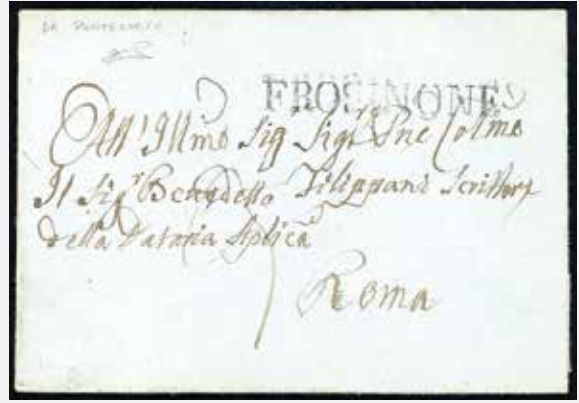 DA PONTECORVO
FROSINONE
All' Illmo Sig Sigr Pne Colmo
Il Sigr Benedetto Filippani Scrittore
della Dataria Aplica
Roma